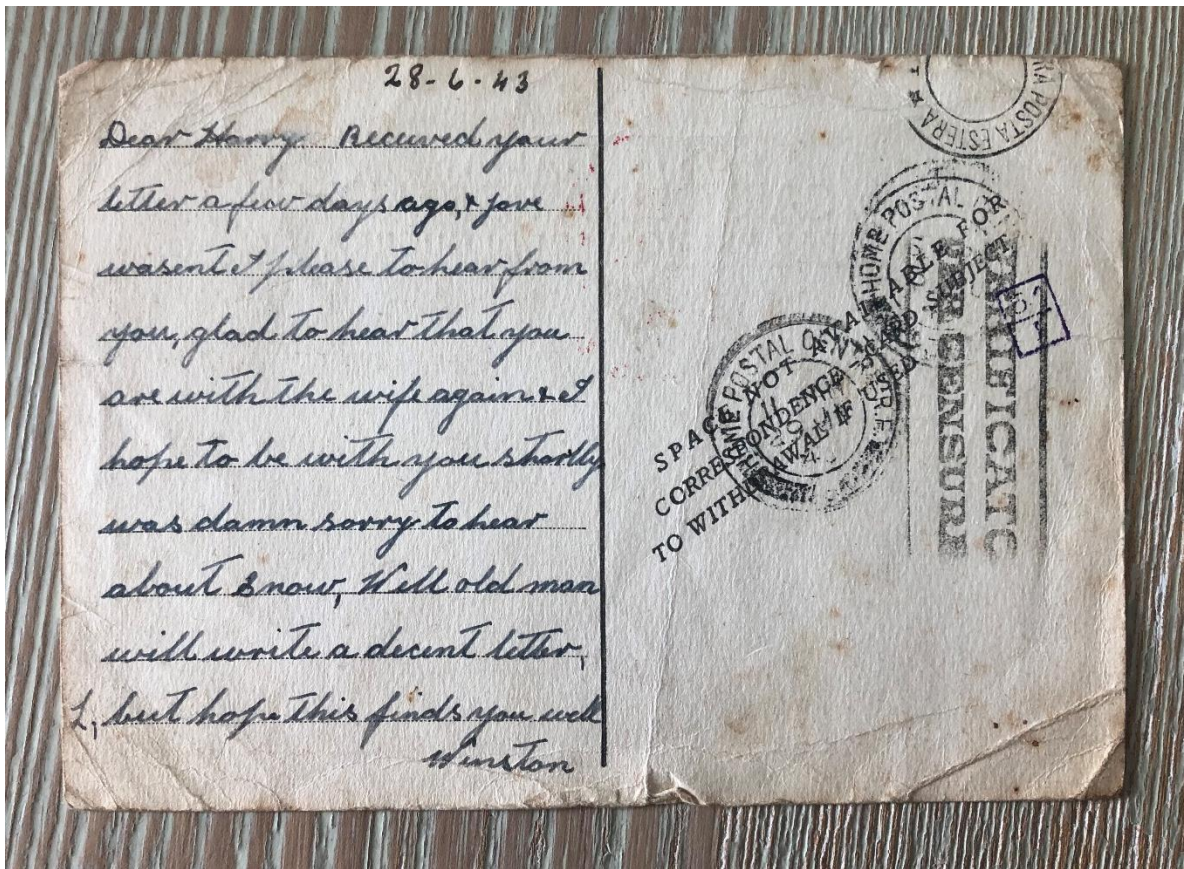 28-6-43
Dear Harry Received your
letter a few days ago, & jove
wasent I please to hear from
you, glad to hear that you
are with the wife again & I
hope to be with you shortly
was damn sorry to hear
about Snow, Well old man
will write a decent letter,
L, but hope this finds you well
Winston
POSTA ESTERA
HOME POSTAL
HOME POSTAL CENTRE
SPACE NOT AVAILABLE FOR
CORRESPONDENCE CARD SUBJECT
TO WITHDRAWAL IF USED
VERIFICATO
PER CENSURA